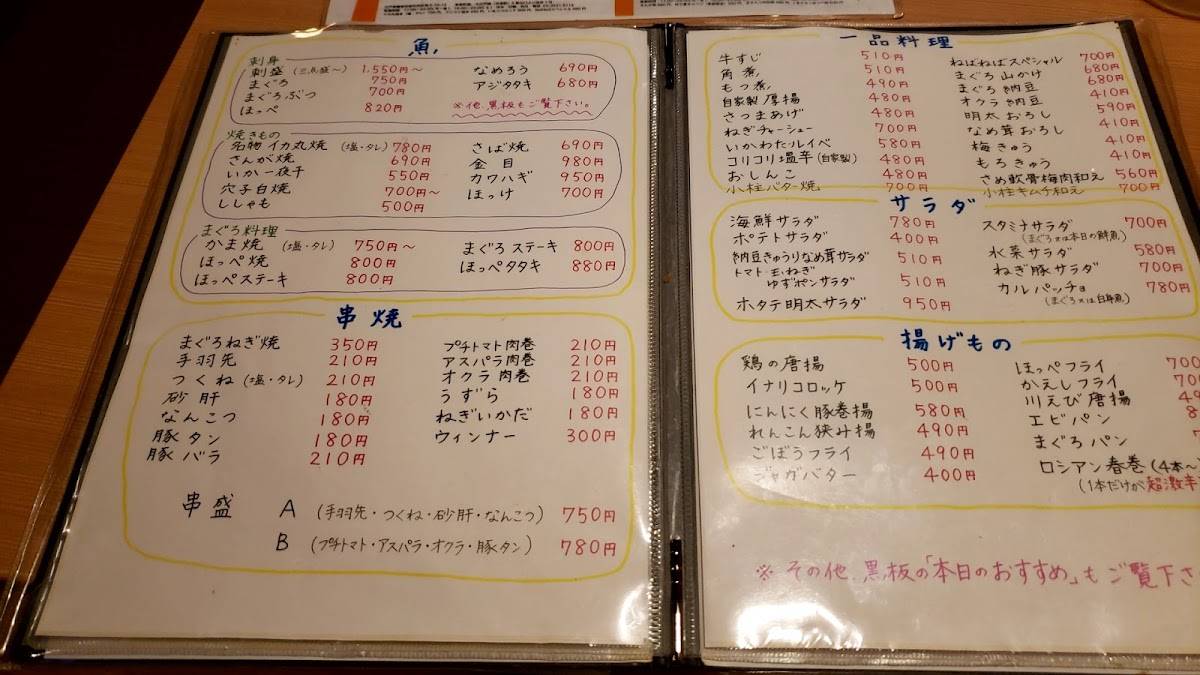 魚
刺身
刺盛(三点盛〜) 1,550円〜
まぐろ 750円
まぐろぶつ 700円
ほっぺ 820円
なめろう 690円
アジタタキ 680円
※他、黒板もご覧下さい。
焼きもの
名物イカ丸焼(塩・タレ) 780円
さんが焼 690円
いか一夜干 550円
穴子白焼 700円〜
ししゃも 500円
さば焼 690円
金目 980円
カワハギ 950円
ほっけ 700円
まぐろ料理
かま焼(塩・タレ) 750円〜
ほっぺ焼 800円
ほっぺステーキ 800円
まぐろステーキ 800円
ほっぺタタキ 880円
串焼
まぐろねぎ焼 350円
手羽先 210円
つくね(塩・タレ) 210円
砂肝 180円
なんこつ 180円
豚タン 180円
豚バラ 210円
プチトマト肉巻 210円
アスパラ肉巻 210円
オクラ肉巻 210円
うずら 180円
ねぎいかだ 180円
ウィンナー 300円
串盛 A (手羽先・つくね・砂肝・なんこつ) 750円
B (プチトマト・アスパラ・オクラ・豚タン) 780円
一品料理
牛すじ 510円
角煮 510円
もつ煮 490円
自家製厚揚 480円
さつまあげ 480円
ねぎチャーシュー 700円
いかわたルイベ 580円
コリコリ塩辛(自家製) 480円
おしんこ 480円
小柱バター焼 700円
ねばねばスペシャル 700円
まぐろ山かけ 680円
まぐろ納豆 680円
オクラ納豆 410円
明太おろし 590円
なめ茸おろし 410円
梅きゅう 410円
もろきゅう 410円
さめ軟骨梅肉和え 560円
小柱キムチ和え 700円
サラダ
海鮮サラダ 780円
ポテトサラダ 400円
納豆きゅうりなめ茸サラダ 510円
トマト・玉ねぎ
ゆずポンサラダ 510円
ホタテ明太サラダ 950円
スタミナサラダ 700円
(まぐろ又は本日の鮮魚)
水菜サラダ 580円
ねぎ豚サラダ 700円
カルパッチョ 780円
(まぐろ又は白身魚)
揚げもの
鶏の唐揚 500円
イナリコロッケ 500円
にんにく豚巻揚 580円
れんこん狭み揚 490円
ごぼうフライ 490円
ジャガバター 400円
ほっぺフライ 700
かえしフライ
川えび唐揚
エビパン
まぐろパン
ロシアン春巻(4本〜)
(1本だけが超激辛
※その他、黒板の「本日のおすすめ」もご覧下さ